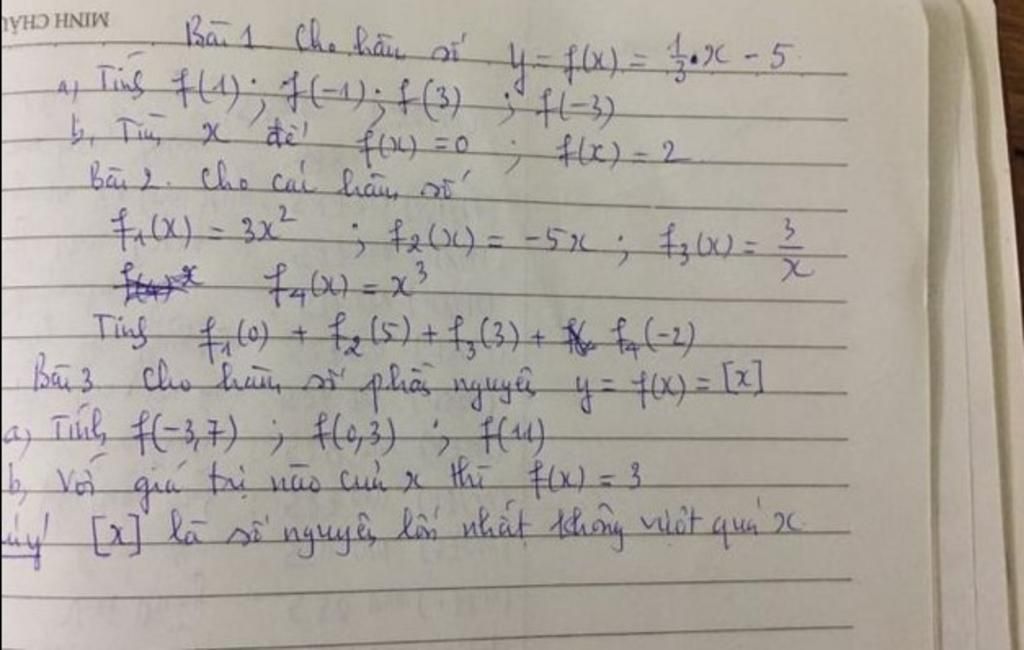 MINH CHÂU
Bài 1 Cho hàm số y = f(x) = 1/3 . x - 5
a, Tính f(1) ; f(-1) ; f(3) ; f(-3)
b, Tìm x để f(x) = 0 ; f(x) = 2
Bài 2. Cho các hàm số
f₁(x) = 3x² ; f₂(x) = -5x ; f₃(x) = 3/x
f₄(x) = x³
Tính f₁(0) + f₂(5) + f₃(3) + f₄(-2)
Bài 3 Cho hàm số phần nguyên y = f(x) = [x]
a, Tính f(-3,7) ; f(0,3) ; f(11)
b, Với giá trị nào của x thì f(x) = 3
úý [x] là số nguyên lớn nhất không vượt quá x